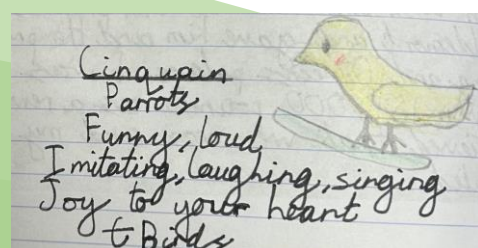 Cinquain
Parrots
Funny, loud,
Imitating, laughing, singing
Joy to your heart
Birds